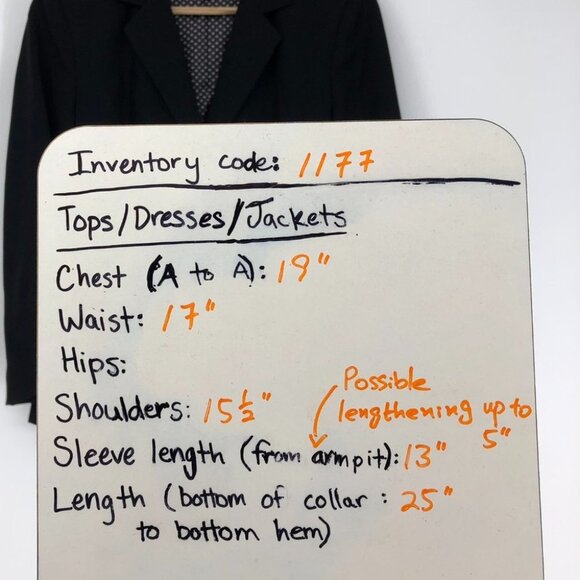 Inventory code: 1177
Tops/Dresses/Jackets
Chest (A to A): 19"
Waist: 17"
Hips:
Shoulders: 15 ½"
Possible
lengthening up to
5"
Sleeve length (from armpit): 13"
Length (bottom of collar : 25"
to bottom hem)